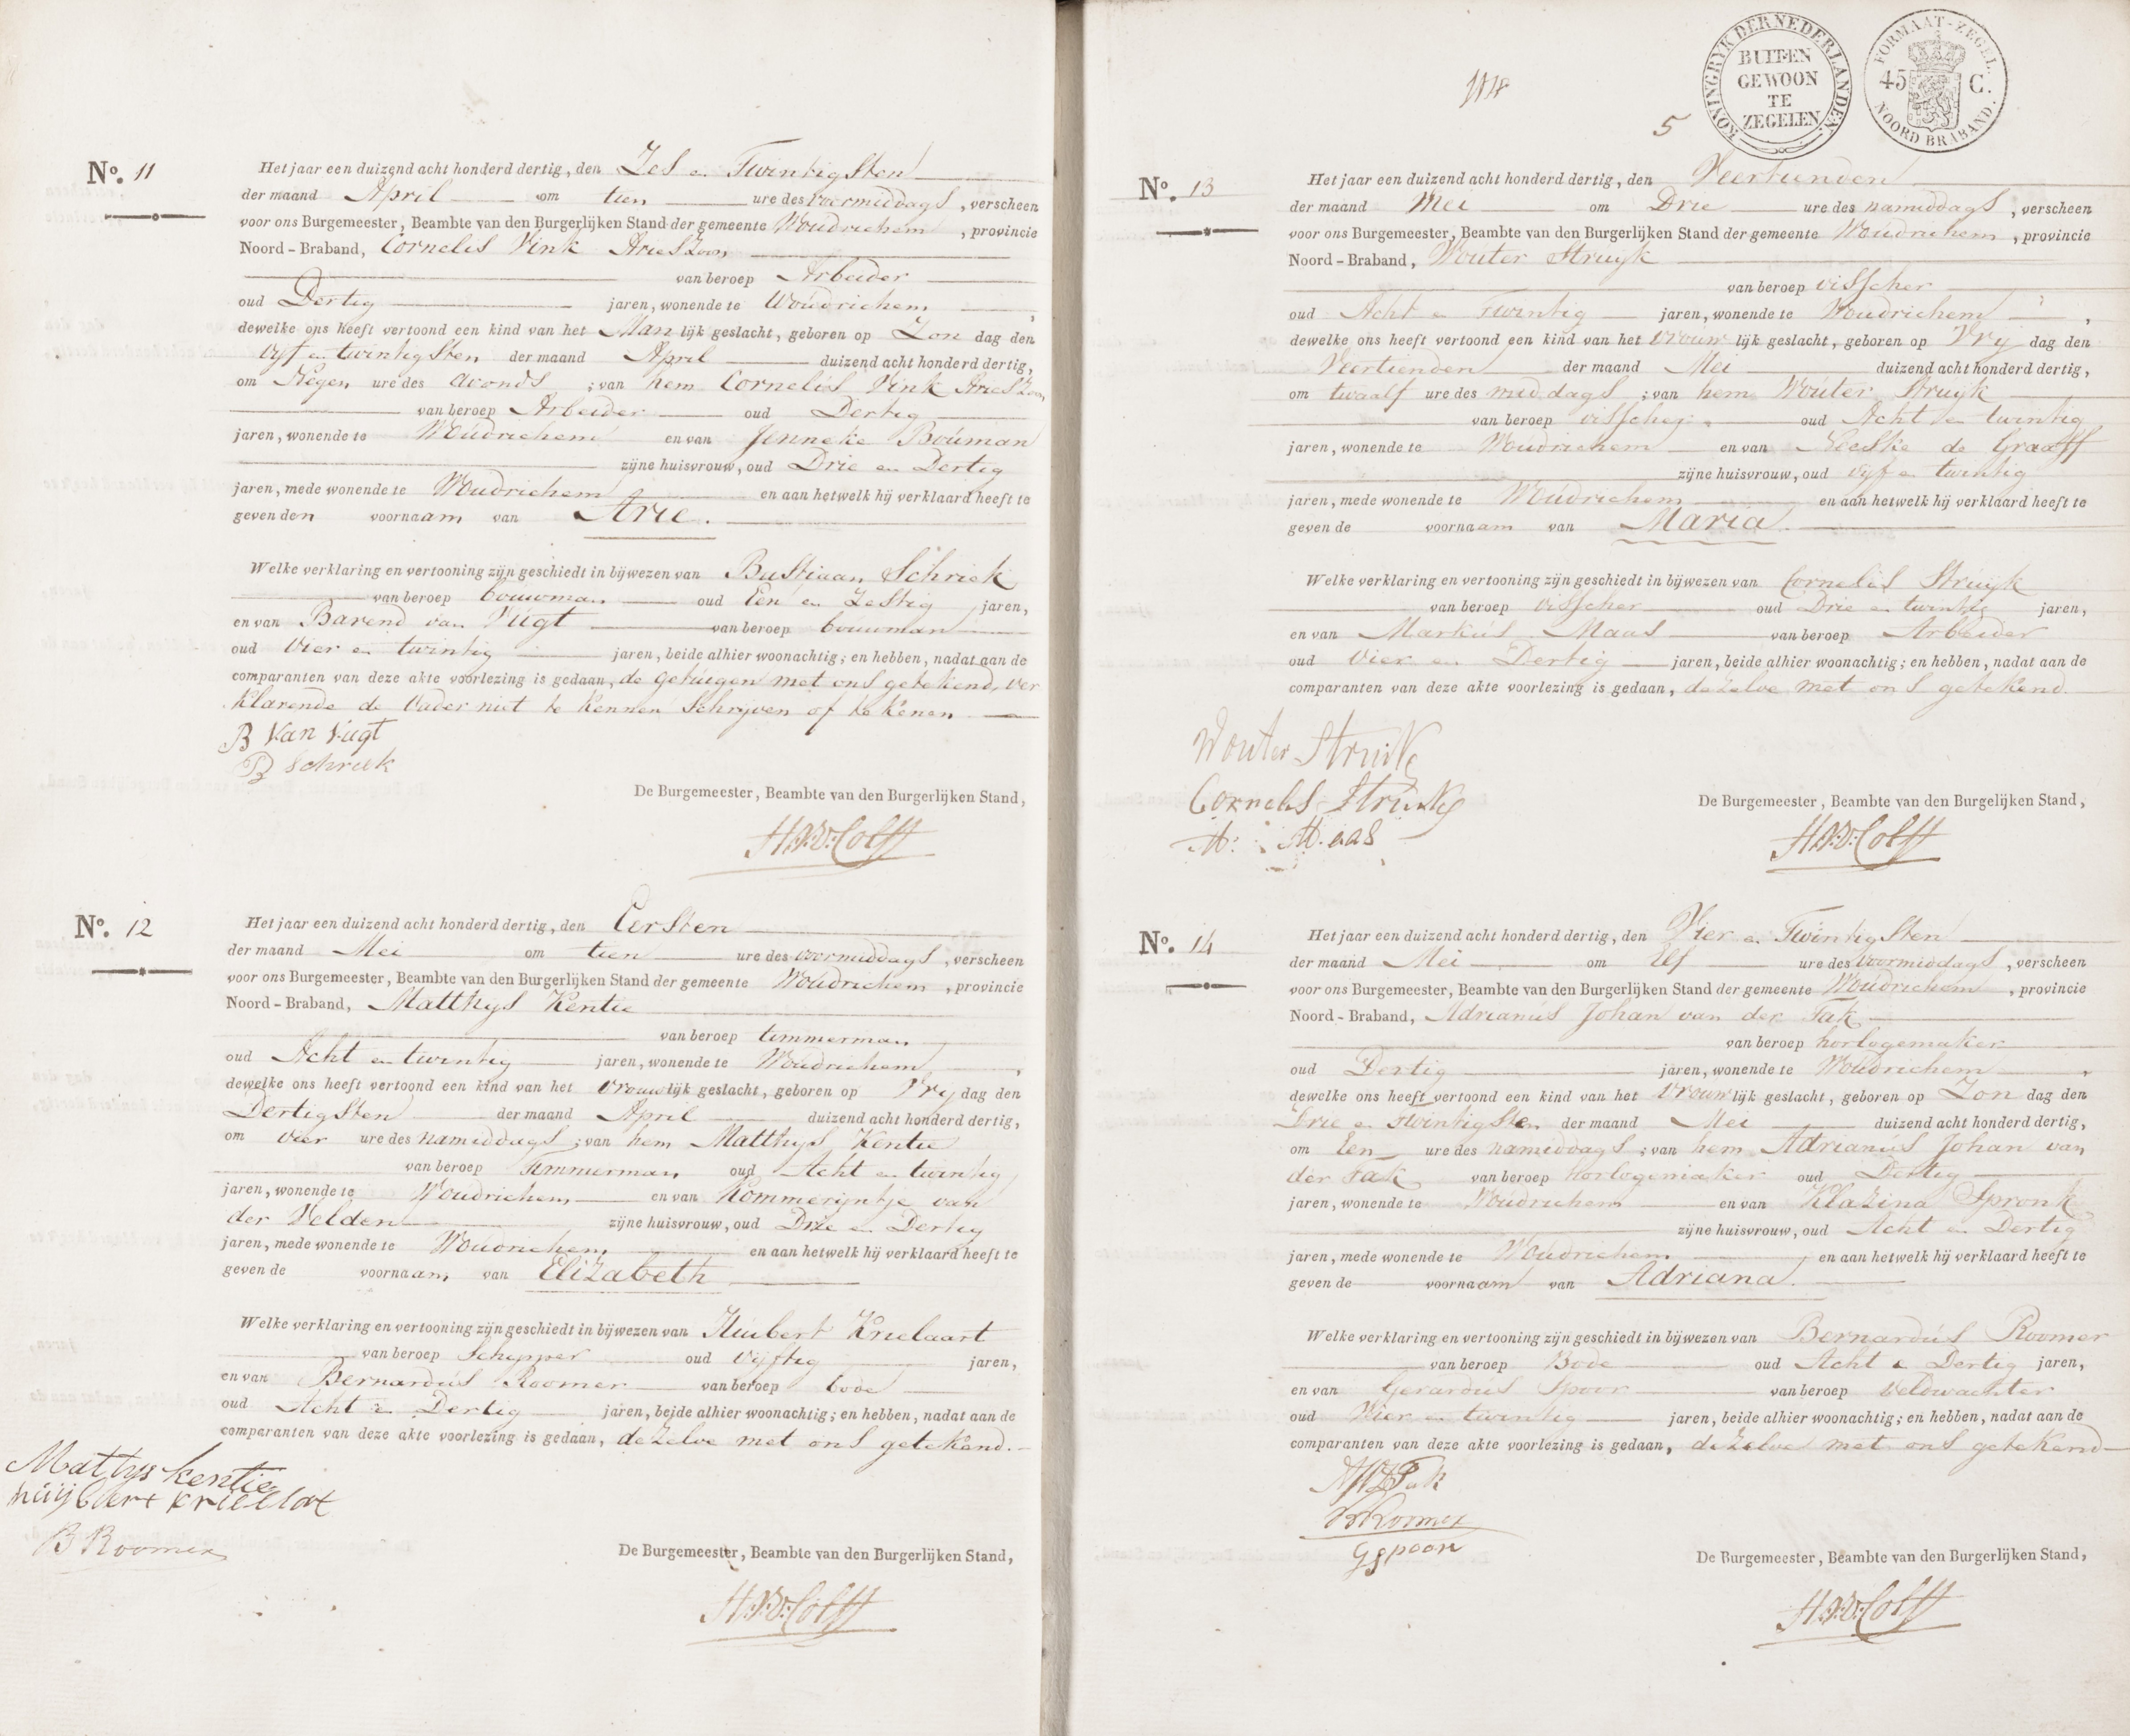 No. 11
Het jaar een duizend acht honderd dertig, den Zes en Twintigsten
der maand April om tien ure des voormiddags, verscheen
voor ons Burgemeester, Beambte van den Burgerlijken Stand der gemeente Woudrichem, provincie
Noord-Braband, Cornelis Vink Arieszoon
van beroep Arbeider
oud Dertig jaren, wonende te Woudrichem,
dewelke ons heeft vertoond een kind van het Manlijk geslacht, geboren op Zon dag den
vijf en twintigsten der maand April duizend acht honderd dertig,
om Negen ure des avonds; van hem Cornelis Vink Arieszoon
van beroep Arbeider oud Dertig
jaren, wonende te Woudrichem en van Jenneke Bouman
zijne huisvrouw, oud Drie en Dertig
jaren, mede wonende te Woudrichem en aan hetwelk hij verklaard heeft te
geven den voornaam van Arie.
Welke verklaring en vertooning zijn geschiedt in bijwezen van Bastjaan Schriek
van beroep bouwman oud Een en Zestig jaren,
en van Barend van Vugt van beroep bouwman
oud Vier en twintig jaren, beide alhier woonachtig; en hebben, nadat aan de
comparanten van deze akte voorlezing is gedaan, de getuigen met ons getekend, ver
klarende de Vader niet te kennen Schrijven of tekenen
B Van Vugt
B Schriek
De Burgemeester, Beambte van den Burgerlijken Stand,
H.V.D. Colff
No. 12
Het jaar een duizend acht honderd dertig, den Eersten
der maand Mei om tien ure des voormiddags, verscheen
voor ons Burgemeester, Beambte van den Burgerlijken Stand der gemeente Woudrichem, provincie
Noord-Braband, Matthys Kentie
van beroep timmerman
oud Acht en twintig jaren, wonende te Woudrichem,
dewelke ons heeft vertoond een kind van het vrouwlijk geslacht, geboren op Vry dag den
Dertigsten der maand April duizend acht honderd dertig,
om vier ure des namiddags; van hem Matthys Kentie
van beroep Timmerman oud Acht en twintig
jaren, wonende te Woudrichem en van Kommerijntje van
der Velden zijne huisvrouw, oud Drie en Dertig
jaren, mede wonende te Woudrichem en aan hetwelk hij verklaard heeft te
geven de voornaam van Elizabeth
Welke verklaring en vertooning zijn geschiedt in bijwezen van Huibert Krielaart
van beroep Schipper oud vijftig jaren,
en van Bernardus Roomer van beroep bode
oud Acht en Dertig jaren, beide alhier woonachtig; en hebben, nadat aan de
comparanten van deze akte voorlezing is gedaan, dezelve met ons getekend.
Mattys kentie
huijbert krielloot
B Roomer
De Burgemeester, Beambte van den Burgerlijken Stand,
H.V.D. Colff
5
KONINGRYK DER NEDERLANDEN
BUITEN
GEWOON
TE
ZEGELEN
FORMAAT-ZEGEL.
45 C.
NOORD BRABAND.
No. 13
Het jaar een duizend acht honderd dertig, den Veertienden
der maand Mei om Drie ure des namiddags, verscheen
voor ons Burgemeester, Beambte van den Burgerlijken Stand der gemeente Woudrichem, provincie
Noord-Braband, Wouter Struyk
van beroep visscher
oud Acht en Twintig jaren, wonende te Woudrichem,
dewelke ons heeft vertoond een kind van het vrouwlijk geslacht, geboren op Vry dag den
Veertienden der maand Mei duizend acht honderd dertig,
om twaalf ure des middags; van hem Wouter Struyk
van beroep visscher oud Acht en twintig
jaren, wonende te Woudrichem en van Neeske de Graaff
zijne huisvrouw, oud vijf en twintig
jaren, mede wonende te Woudrichem en aan hetwelk hij verklaard heeft te
geven de voornaam van Maria.
Welke verklaring en vertooning zijn geschiedt in bijwezen van Cornelis Struyk
van beroep visscher oud Drie en twintig jaren,
en van Markus Maas van beroep Arbeider
oud Vier en Dertig jaren, beide alhier woonachtig; en hebben, nadat aan de
comparanten van deze akte voorlezing is gedaan, dezelve met ons getekend.
Wouter Struik
Cornelis Struik
M: Maas
De Burgemeester, Beambte van den Burgelijken Stand,
H.V.D. Colff
No. 14
Het jaar een duizend acht honderd dertig, den Vier en Twintigsten
der maand Mei om Elf ure des voormiddags, verscheen
voor ons Burgemeester, Beambte van den Burgerlijken Stand der gemeente Woudrichem, provincie
Noord-Braband, Adrianus Johan van der Tak
van beroep horlogemaker
oud Dertig jaren, wonende te Woudrichem,
dewelke ons heeft vertoond een kind van het vrouwlijk geslacht, geboren op Zon dag den
Drie en Twintigsten der maand Mei duizend acht honderd dertig,
om Een ure des namiddags; van hem Adrianus Johan van
der Tak van beroep horlogemaker oud Dertig
jaren, wonende te Woudrichem en van Klazina Spronk
zijne huisvrouw, oud Acht en Dertig
jaren, mede wonende te Woudrichem en aan hetwelk hij verklaard heeft te
geven de voornaam van Adriana.
Welke verklaring en vertooning zijn geschiedt in bijwezen van Bernardus Roomer
van beroep Bode oud Acht en Dertig jaren,
en van Gerardus Spoor van beroep veldwachter
oud Vier en twintig jaren, beide alhier woonachtig; en hebben, nadat aan de
comparanten van deze akte voorlezing is gedaan, dezelve met ons getekend
Tak
B Roomer
G Spoor
De Burgemeester, Beambte van den Burgerlijken Stand,
H.V.D. Colff